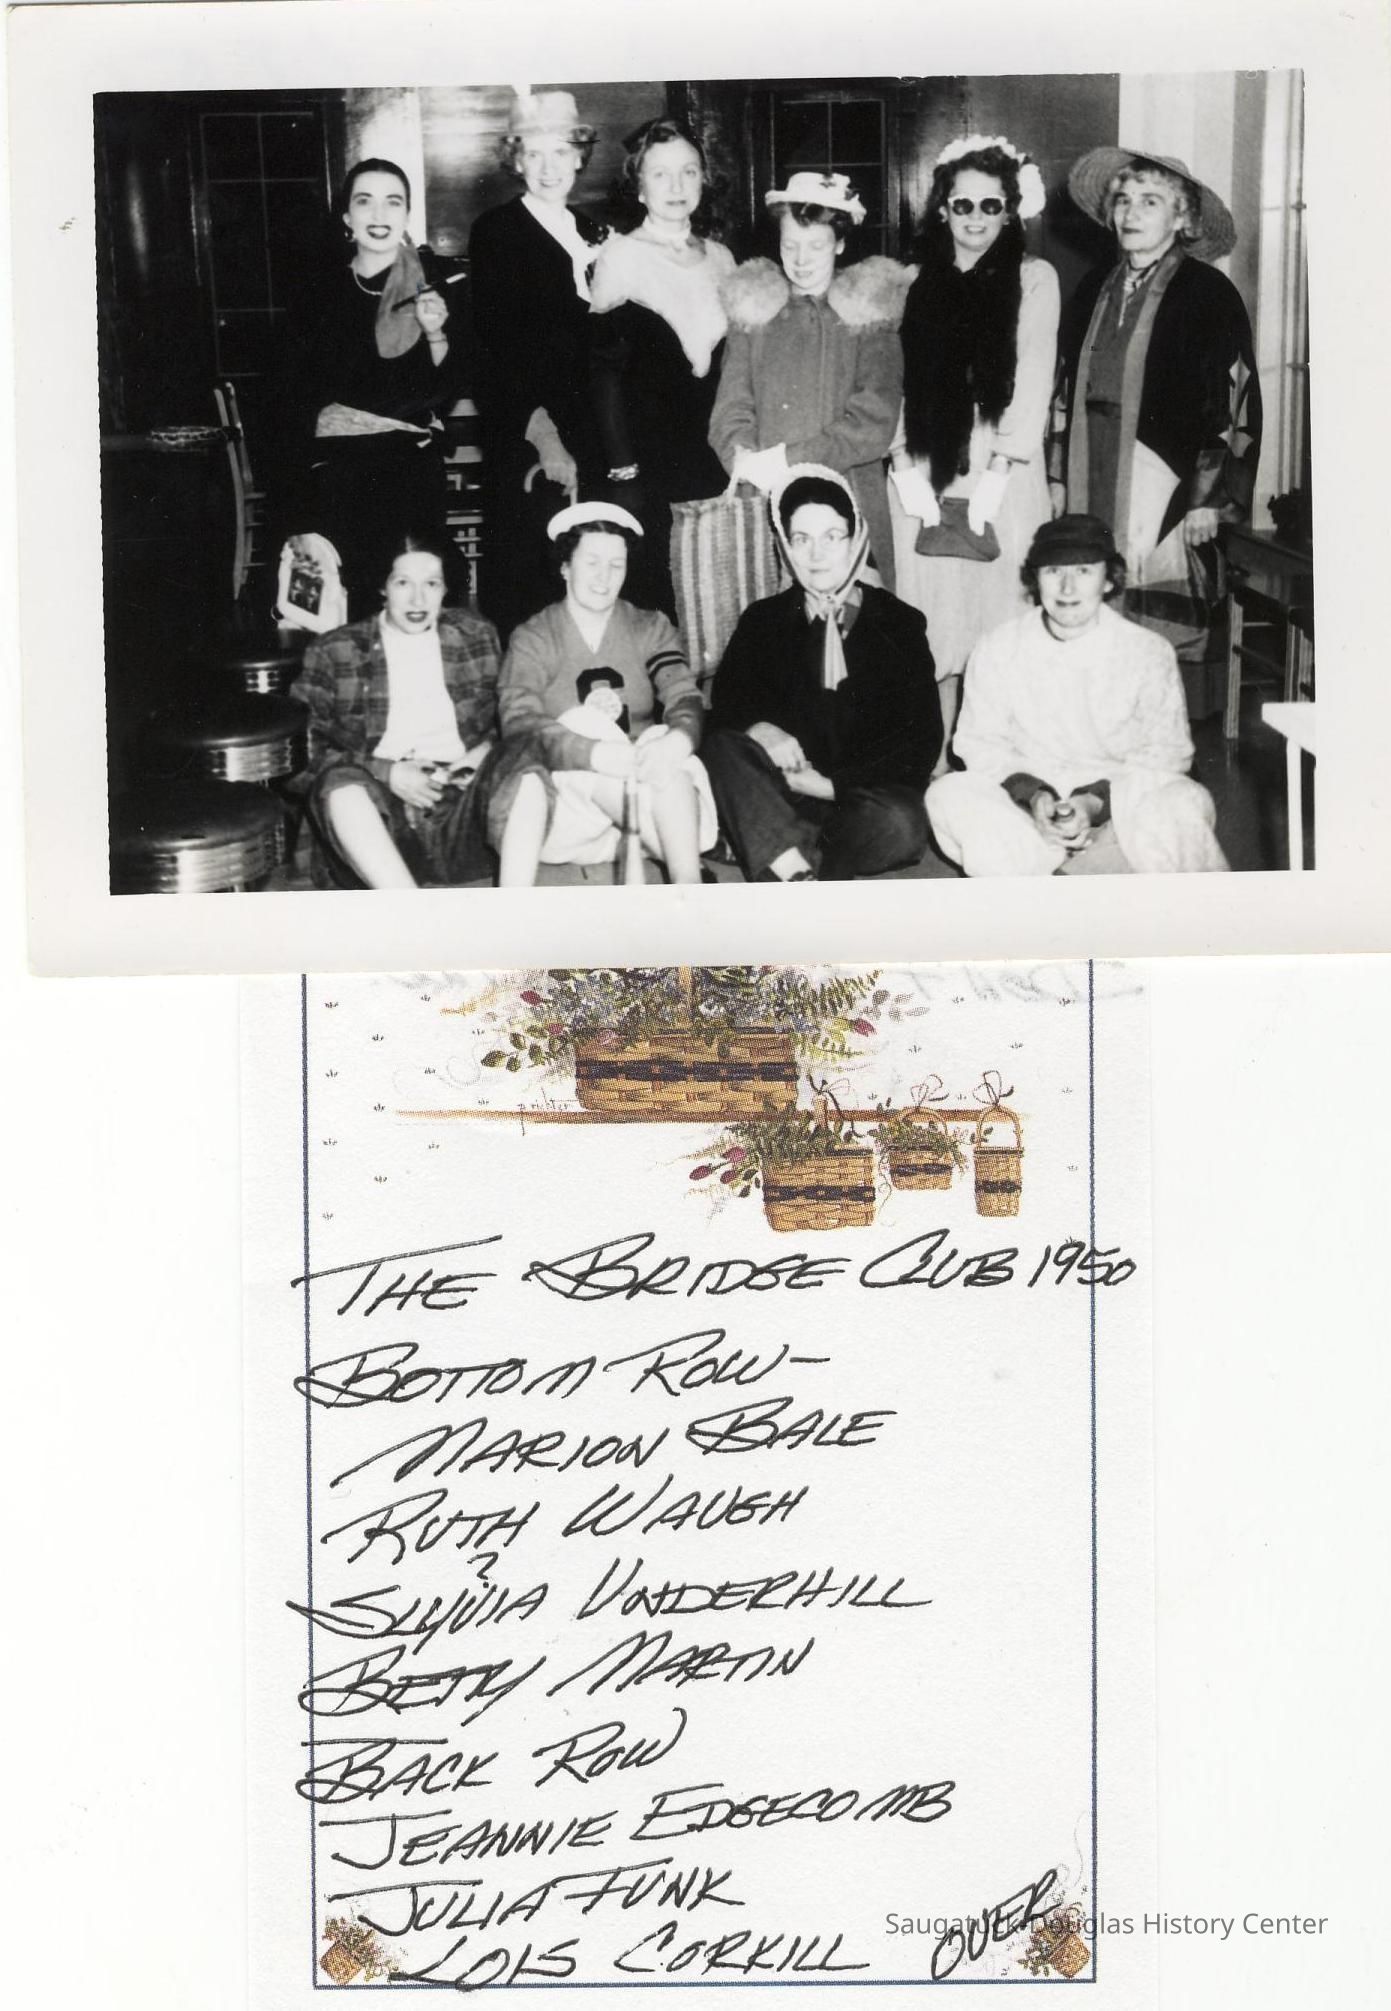 C
p.richter
THE BRIDGE CLUB 1950
BOTTOM ROW-
MARION BALE
RUTH WAUGH
?
SLYVIA UNDERHILL
BETTY MARTIN
BACK ROW
JEANNIE EDGECOMB
JULIA FUNK
LOIS CORKILL
OVER
Saugatuck-Douglas History Center